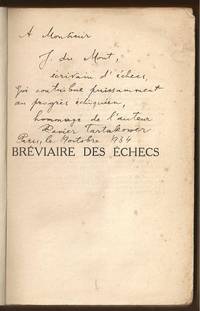 A Monsieur
J. du Mont,
écrivain d'échecs,
qui contribue puissamment
au progrès échiquéen,
hommage de l'auteur
Xavier Tartakower
Paris, le octobre 1934
BRÉVIAIRE DES ÉCHECS